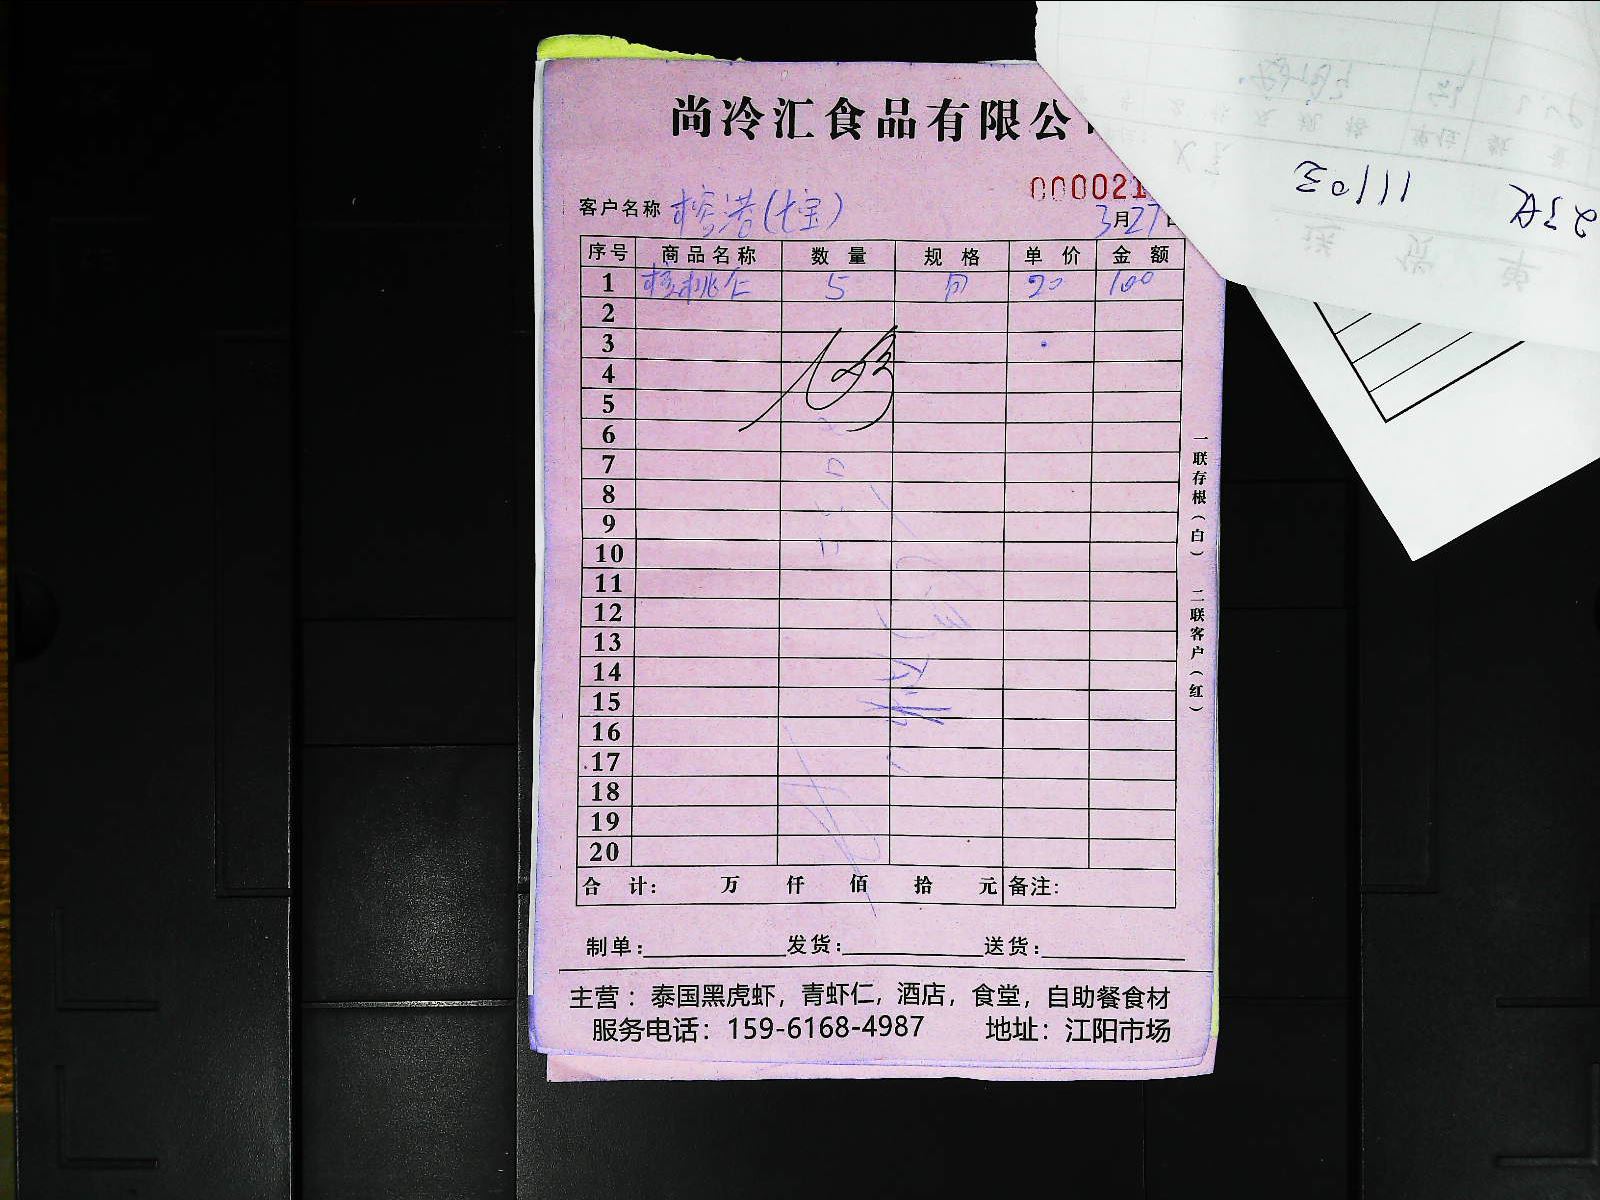 尚冷汇食品有限公
000021
客户名称 榕港(七宝) 3月27日
序号 商品名称 数量 规格 单价 金额
1 核桃仁 5 20 100
2
3
4
5
6
7
8
9
10
11
12
13
14
15
16
17
18
19
20
合计: 万 仟 佰 拾 元 备注:
制单: 发货: 送货:
主营：泰国黑虎虾，青虾仁，酒店，食堂，自助餐食材
服务电话：159-6168-4987 地址：江阳市场
一联存根（白） 二联客户（红）
送货单